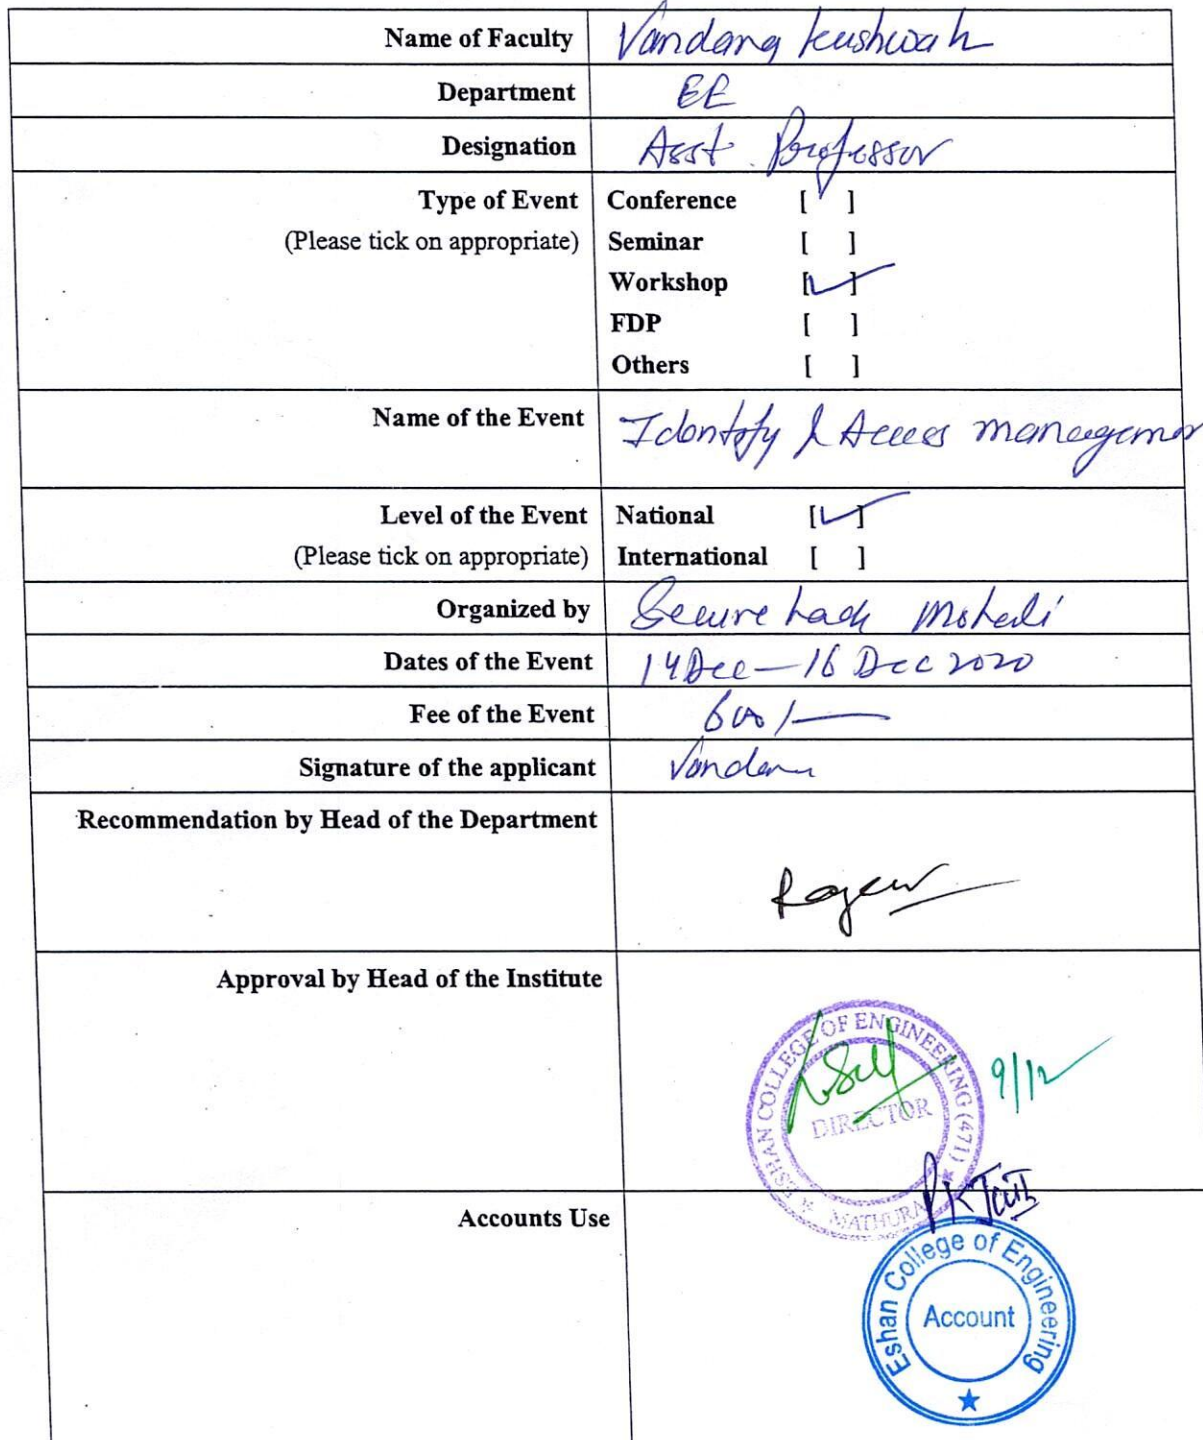 Name of Faculty Vandana Kushwah
Department EE
Designation Asst. Professor
Type of Event Conference [ ]
(Please tick on appropriate) Seminar [ ]
Workshop [✓]
FDP [ ]
Others [ ]
Name of the Event Identify & Access managemen
Level of the Event National [✓]
(Please tick on appropriate) International [ ]
Organized by Secure hack Mohali
Dates of the Event 14 Dec — 16 Dec 2020
Fee of the Event 600/—
Signature of the applicant Vandana
Recommendation by Head of the Department
Rajeev
Approval by Head of the Institute
ESHAN COLLEGE OF ENGINEERING (471)
DIRECTOR
MATHURA
9/12
Accounts Use
Eshan College of Engineering
Account